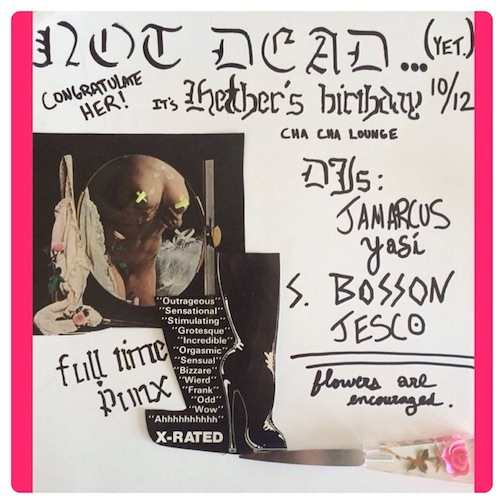 NOT DEAD... (YET.)
CONGRATULATE HER!
IT'S Hether's birthday 10/12
CHA CHA LOUNGE
DJs:
JAMARCUS
yasi
S. BOSSON
JESCO
flowers are
encouraged.
full time
punx
"Outrageous"
"Sensational"
"Stimulating"
"Grotesque"
"Incredible"
"Orgasmic"
"Sensual"
"Bizzare"
"Wierd"
"Frank"
"Odd"
"Wow"
"Ahhhhhhhhhh"
X-RATED